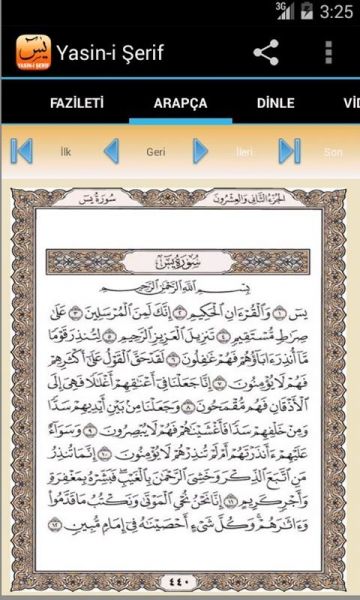 3G 3:25
يس
YASIN-I ŞERIF
Yasin-i Şerif
FAZİLETİ ARAPÇA DİNLE VİD
İlk Geri İleri Son
الجزء الثاني والعشرون سورة يس
سورة يس
بسم الله الرحمن الرحيم
يسٓ ۝١ وَٱلْقُرْءَانِ ٱلْحَكِيمِ ۝٢ إِنَّكَ لَمِنَ ٱلْمُرْسَلِينَ ۝٣ عَلَىٰ
صِرَٰطٍ مُّسْتَقِيمٍ ۝٤ تَنزِيلَ ٱلْعَزِيزِ ٱلرَّحِيمِ ۝٥ لِتُنذِرَ قَوْمًا
مَّآ أُنذِرَ ءَابَآؤُهُمْ فَهُمْ غَٰفِلُونَ ۝٦ لَقَدْ حَقَّ ٱلْقَوْلُ عَلَىٰٓ أَكْثَرِهِمْ
فَهُمْ لَا يُؤْمِنُونَ ۝٧ إِنَّا جَعَلْنَا فِىٓ أَعْنَٰقِهِمْ أَغْلَٰلًا فَهِىَ إِلَى
ٱلْأَذْقَانِ فَهُم مُّقْمَحُونَ ۝٨ وَجَعَلْنَا مِنۢ بَيْنِ أَيْدِيهِمْ سَدًّا
وَمِنْ خَلْفِهِمْ سَدًّا فَأَغْشَيْنَٰهُمْ فَهُمْ لَا يُبْصِرُونَ ۝٩ وَسَوَآءٌ
عَلَيْهِمْ ءَأَنذَرْتَهُمْ أَمْ لَمْ تُنذِرْهُمْ لَا يُؤْمِنُونَ ۝١٠ إِنَّمَا تُنذِرُ
مَنِ ٱتَّبَعَ ٱلذِّكْرَ وَخَشِىَ ٱلرَّحْمَٰنَ بِٱلْغَيْبِ فَبَشِّرْهُ بِمَغْفِرَةٍ
وَأَجْرٍ كَرِيمٍ ۝١١ إِنَّا نَحْنُ نُحْىِ ٱلْمَوْتَىٰ وَنَكْتُبُ مَا قَدَّمُوا۟
وَءَاثَٰرَهُمْ وَكُلَّ شَىْءٍ أَحْصَيْنَٰهُ فِىٓ إِمَامٍ مُّبِينٍ ۝١٢
٤٤٠